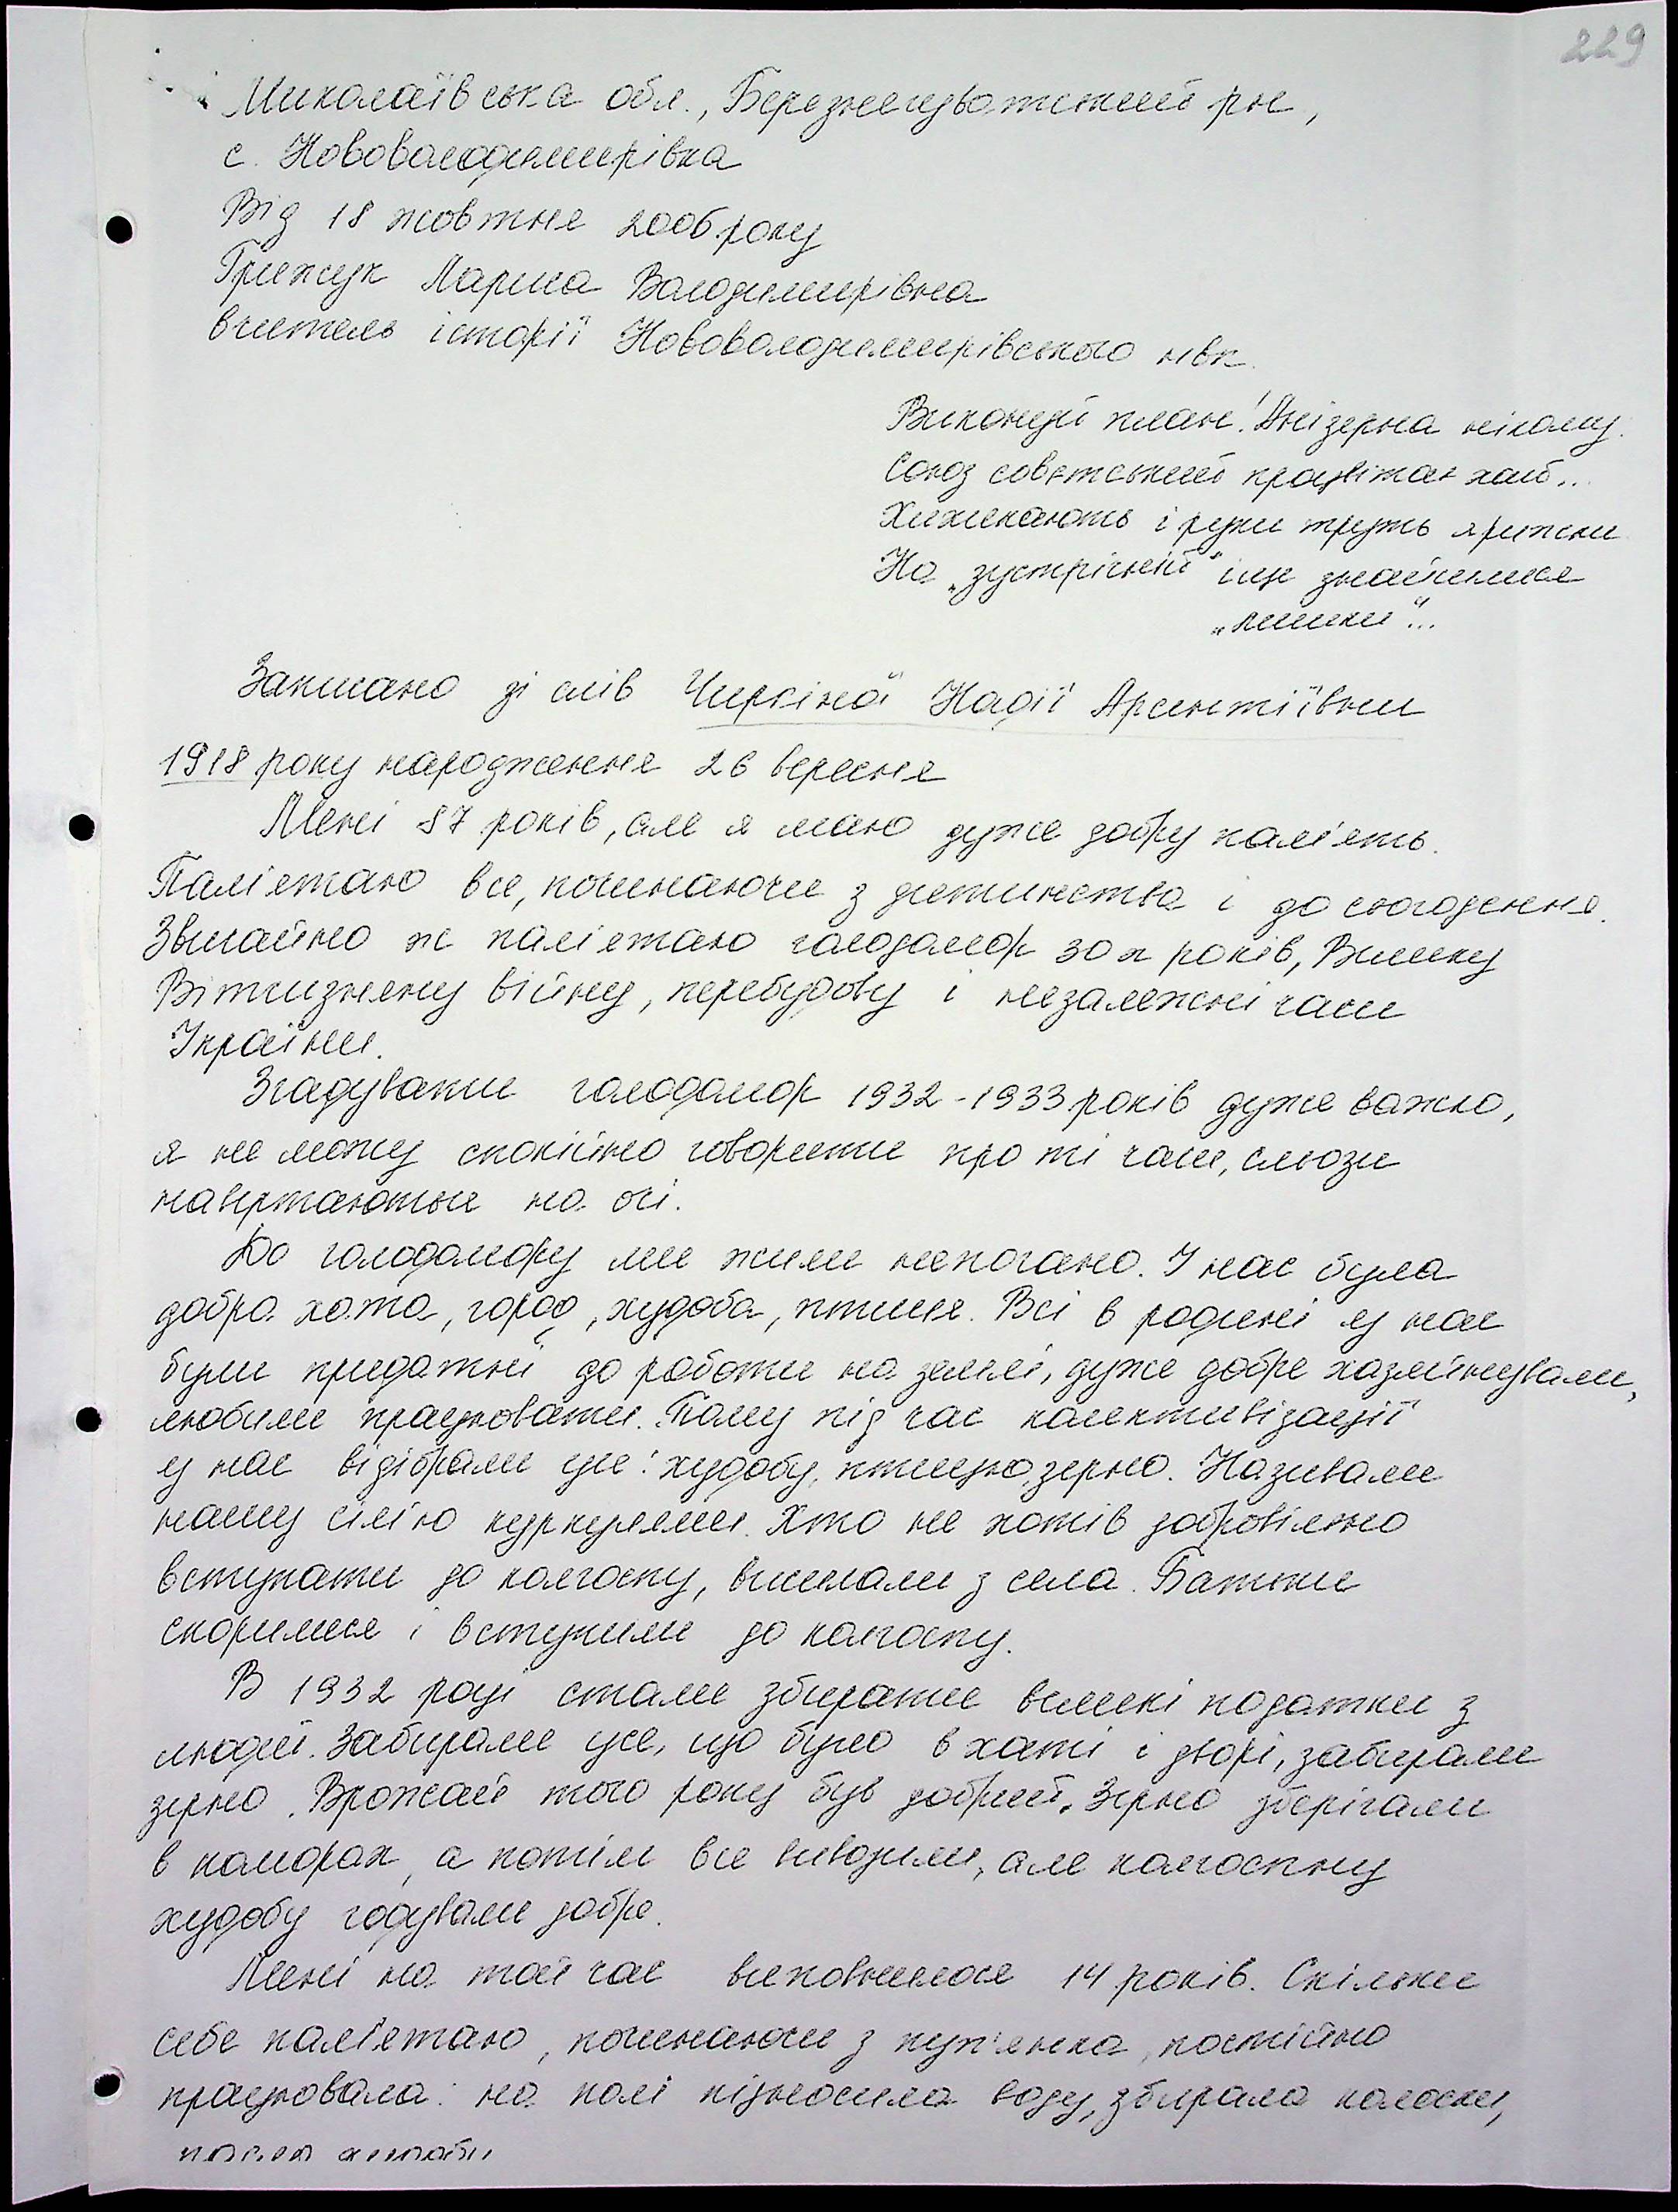 229
Миколаївська обл., Березнегуватський р-н,
с. Нововолодимирівка
Від 18 жовтня 2006 року
Грижук Лариса Володимирівна
вчитель історії Нововолодимирівського нвк.
Виконуй план! Ані зерна нікому.
Союз совєтський процвітає хай...
Хихикають і руки труть
На „зустрічний" іще знайшлися
„лишки"...
Записано зі слів Чиркіної Надії Арсентіївни
1918 року народження 26 вересня
Мені 87 років, але я маю дуже добру пам'ять.
Пам'ятаю все, починаючи з дитинства і до сьогодення.
Звичайно ж пам'ятаю голодомор 30 х років, Велику
Вітчизняну війну, перебудову і незалежні часи
України.
Згадувати голодомор 1932-1933 років дуже важко,
я не можу спокійно говорити про ті часи, сльози
навертаються на очі.
До голодомору ми жили непогано. У нас була
добра хата, город, худоба, птиця. Всі в родині у нас
були придатні до роботи на землі, дуже добре хазяйнували,
любили працювати. Тому під час колективізації
у нас відібрали усе: худобу, птицю, зерно. Називали
нашу сім'ю куркулями. Хто не хотів добровільно
вступати до колгоспу, висилали з села. Батьки
скорилися і вступили до колгоспу.
В 1932 році стали збирати великі податки з
людей. Забирали усе, що було в хаті і дворі, забирали
зерно. Врожай того року був добрий. Зерно зберігали
в коморах, а потім все вивозили, але колгоспну
худобу годували добре.
Мені на той час виповнилося 14 років. Скільки
себе пам'ятаю, починаючи з пуп'янка, постійно
працювала: на полі підносила воду, збирала колоски,